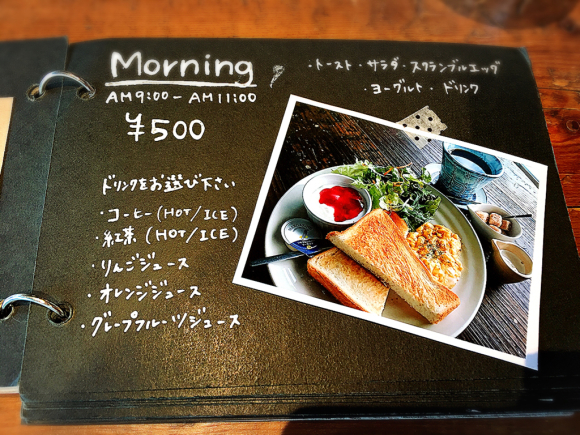 Morning
AM9:00-AM11:00
¥500
・トースト・サラダ・スクランブルエッグ
・ヨーグルト・ドリンク
ドリンクをお選び下さい
・コーヒー(HOT/ICE)
・紅茶(HOT/ICE)
・りんごジュース
・オレンジジュース
・グレープフルーツジュース